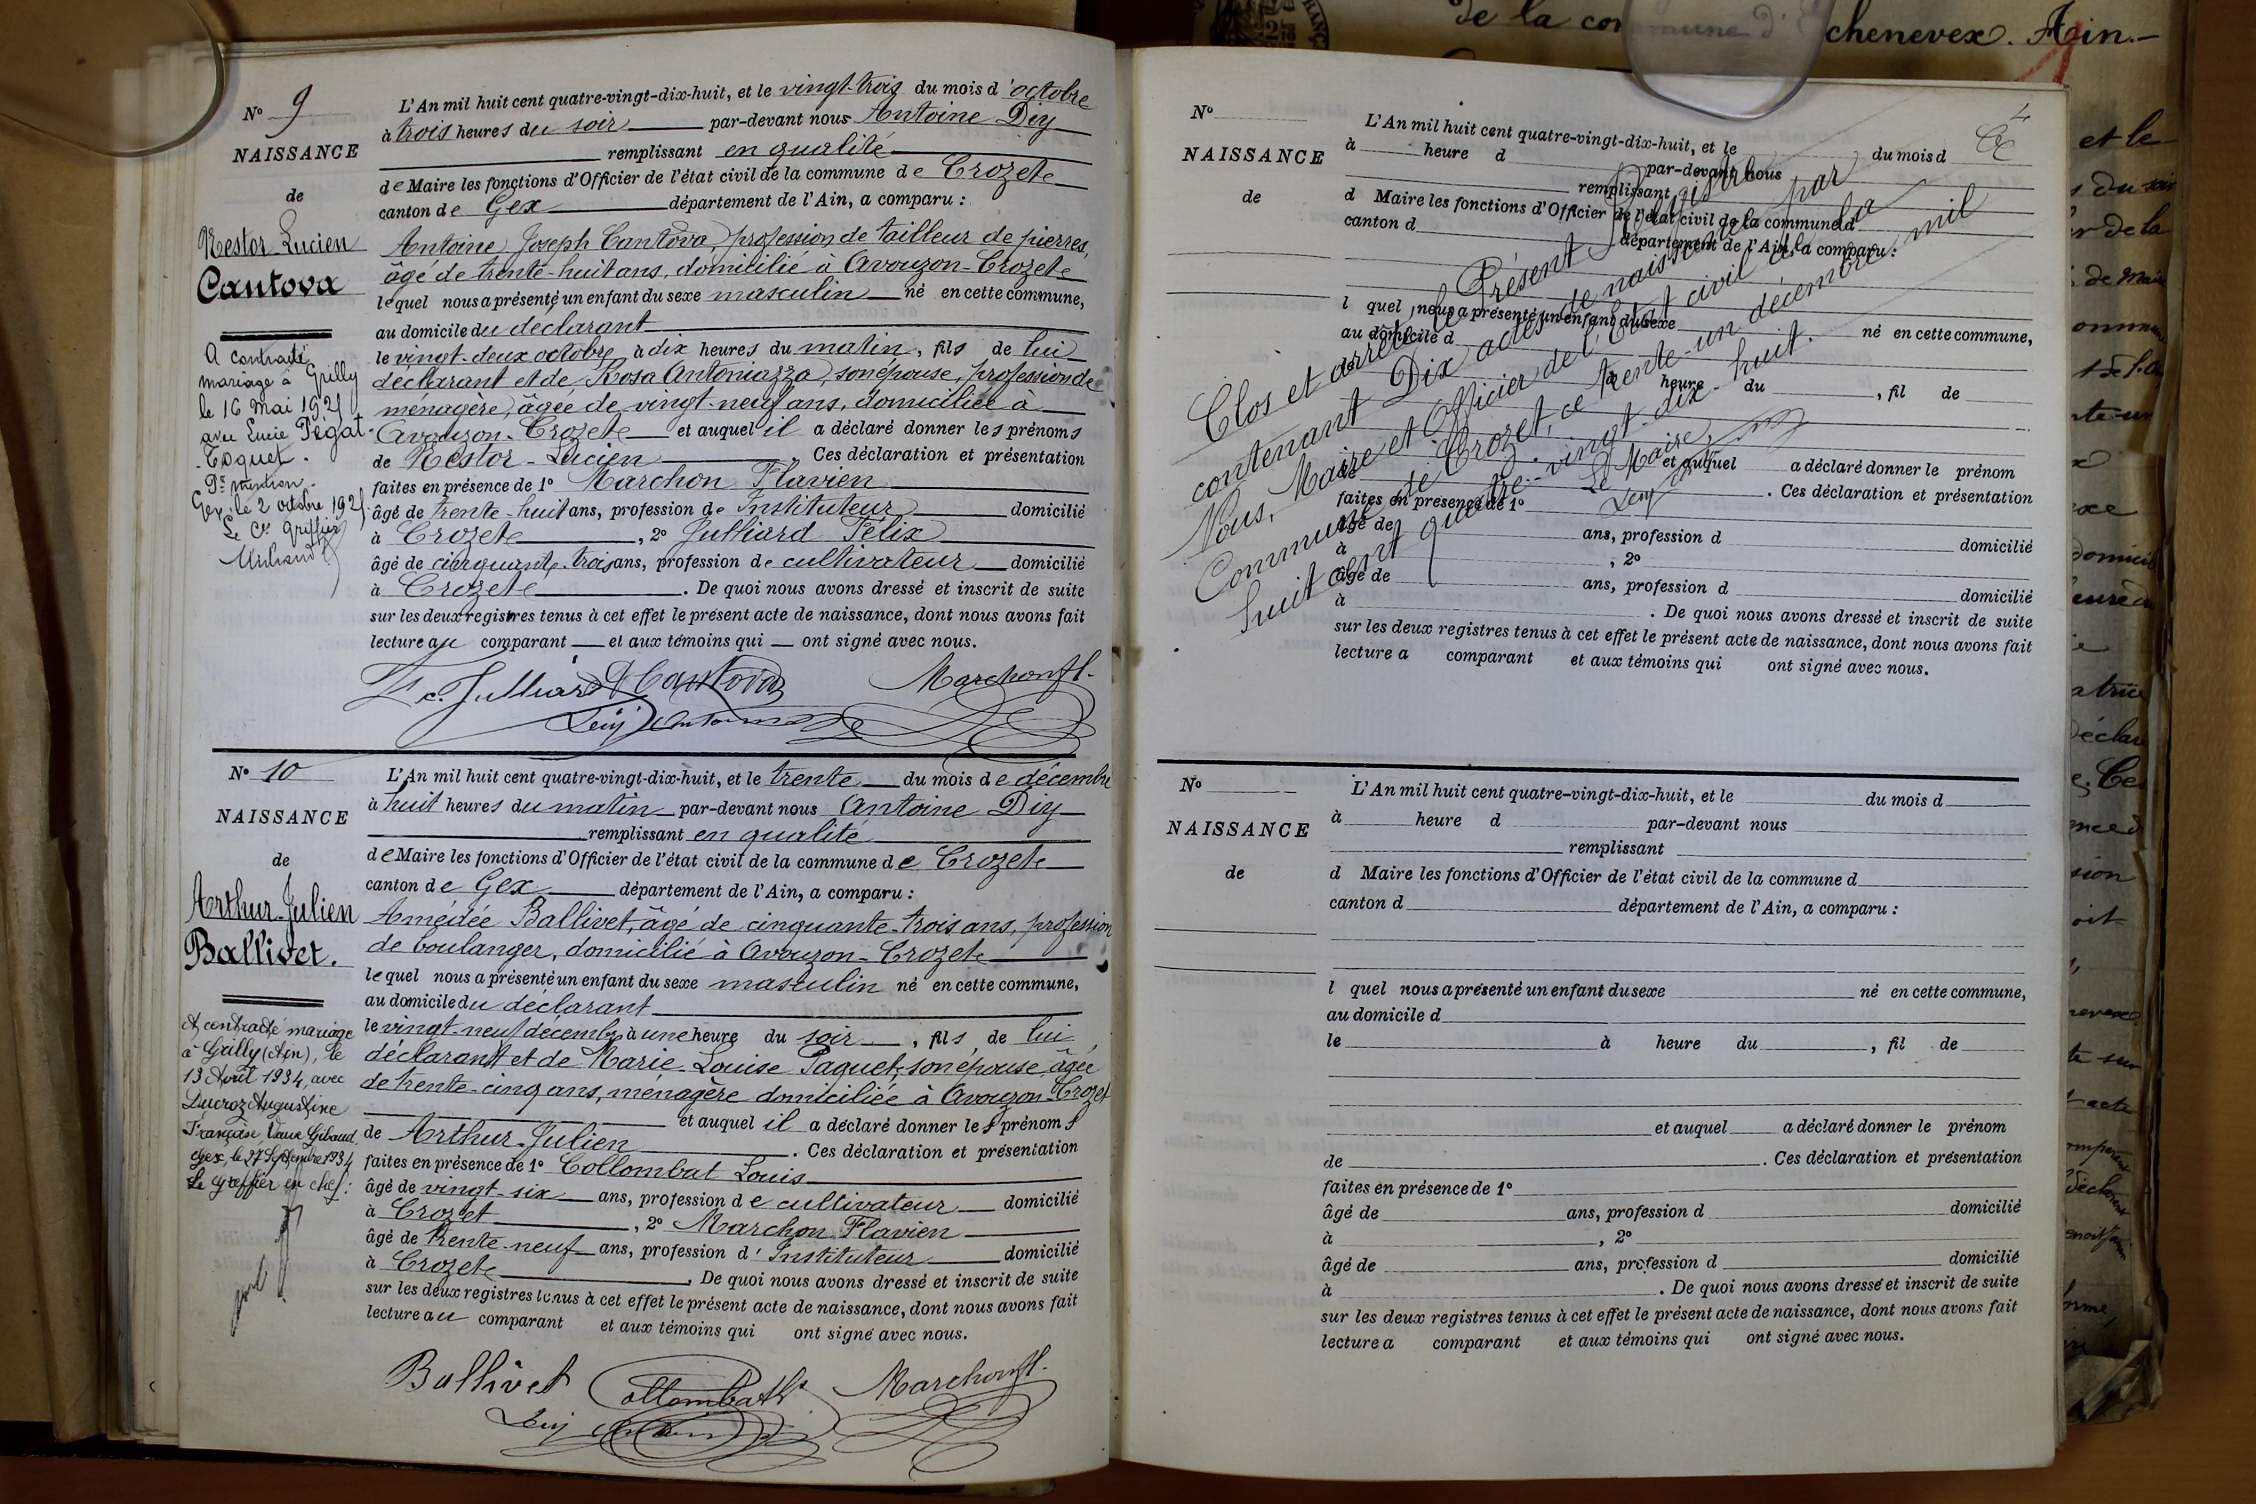 de la commune d'Echenevex. Ain.-
N° 9
NAISSANCE
de
Nestor-Lucien
Cantova
A contracté
mariage à Grilly
le 16 Mai 1921
avec Lucie Pegat-
Toquet.
Pr mention.
Gex, le 2 octobre 1921
Le Cs Greffier
L'An mil huit cent quatre-vingt-dix-huit, et le vingt-trois du mois d'octobre
à trois heures du soir par-devant nous Antoine Diy
remplissant en qualité
de Maire les fonctions d'Officier de l'état civil de la commune de Crozet
canton de Gex département de l'Ain, a comparu :
Antoine Joseph Cantova, profession de tailleur de pierres,
âgé de trente-huit ans, domicilié à Avouzon-Crozet
lequel nous a présenté un enfant du sexe masculin né en cette commune,
au domicile du déclarant
le vingt-deux octobre à dix heures du matin, fils de lui
déclarant et de Rosa Antoniazza, son épouse, profession de
ménagère, âgée de vingt-neuf ans, domiciliée à
Avouzon-Crozet et auquel il a déclaré donner les prénoms
de Nestor-Lucien. Ces déclaration et présentation
faites en présence de 1° Marchon Flavien
âgé de trente-huit ans, profession de Instituteur domicilié
à Crozet, 2° Julliard Félix
âgé de cinquante-trois ans, profession de cultivateur domicilié
à Crozet. De quoi nous avons dressé et inscrit de suite
sur les deux registres tenus à cet effet le présent acte de naissance, dont nous avons fait
lecture au comparant et aux témoins qui ont signé avec nous.
Fc. Julliard Cantova Marchon fl.
N° 10
NAISSANCE
de
Arthur-Julien
Ballivet.
A contracté mariage
à Grilly (Ain), le
13 Août 1934, avec
Ducroz Augustine
Françoise, Veuve Gibaud.
Gex, le 27 Septembre 1934
Le Greffier en chef :
L'An mil huit cent quatre-vingt-dix-huit, et le trente du mois de décembre
à huit heures du matin par-devant nous Antoine Diy
remplissant en qualité
de Maire les fonctions d'Officier de l'état civil de la commune de Crozet
canton de Gex département de l'Ain, a comparu :
Amédée Ballivet, âgé de cinquante-trois ans, profession
de boulanger, domicilié à Avouzon-Crozet
lequel nous a présenté un enfant du sexe masculin né en cette commune,
au domicile du déclarant
le vingt-neuf décembre à une heure du soir, fils de lui
déclarant et de Marie-Louise Paquet, son épouse, âgée
de trente-cinq ans, ménagère domiciliée à Avouzon-Crozet
et auquel il a déclaré donner les prénoms
de Arthur-Julien. Ces déclaration et présentation
faites en présence de 1° Collombat Louis
âgé de vingt-six ans, profession de cultivateur domicilié
à Crozet, 2° Marchon Flavien
âgé de trente-neuf ans, profession d'Instituteur domicilié
à Crozet. De quoi nous avons dressé et inscrit de suite
sur les deux registres tenus à cet effet le présent acte de naissance, dont nous avons fait
lecture au comparant et aux témoins qui ont signé avec nous.
Ballivet Collombat Ls Marchon fl.
N°
NAISSANCE
de
L'An mil huit cent quatre-vingt-dix-huit, et le du mois d
à heure d par-devant nous
remplissant
d Maire les fonctions d'Officier de l'état civil de la commune d
canton d département de l'Ain, a comparu :
l quel nous a présenté un enfant du sexe né en cette commune,
au domicile d
le à heure du, fil de
et auquel a déclaré donner le prénom
de. Ces déclaration et présentation
faites en présence de 1°
âgé de ans, profession d domicilié
à, 2°
âgé de ans, profession d domicilié
à. De quoi nous avons dressé et inscrit de suite
sur les deux registres tenus à cet effet le présent acte de naissance, dont nous avons fait
lecture a comparant et aux témoins qui ont signé avec nous.
Clos et arrêté le Présent Registre
contenant Dix actes de naissance par
Nous, Maire et Officier de l'Etat civil de la
Commune de Crozet, ce trente-un décembre mil
huit cent quatre-vingt-dix-huit.
Le Maire,
N°
NAISSANCE
de
L'An mil huit cent quatre-vingt-dix-huit, et le du mois d
à heure d par-devant nous
remplissant
d Maire les fonctions d'Officier de l'état civil de la commune d
canton d département de l'Ain, a comparu :
l quel nous a présenté un enfant du sexe né en cette commune,
au domicile d
le à heure du, fil de
et auquel a déclaré donner le prénom
de. Ces déclaration et présentation
faites en présence de 1°
âgé de ans, profession d domicilié
à, 2°
âgé de ans, profession d domicilié
à. De quoi nous avons dressé et inscrit de suite
sur les deux registres tenus à cet effet le présent acte de naissance, dont nous avons fait
lecture a comparant et aux témoins qui ont signé avec nous.